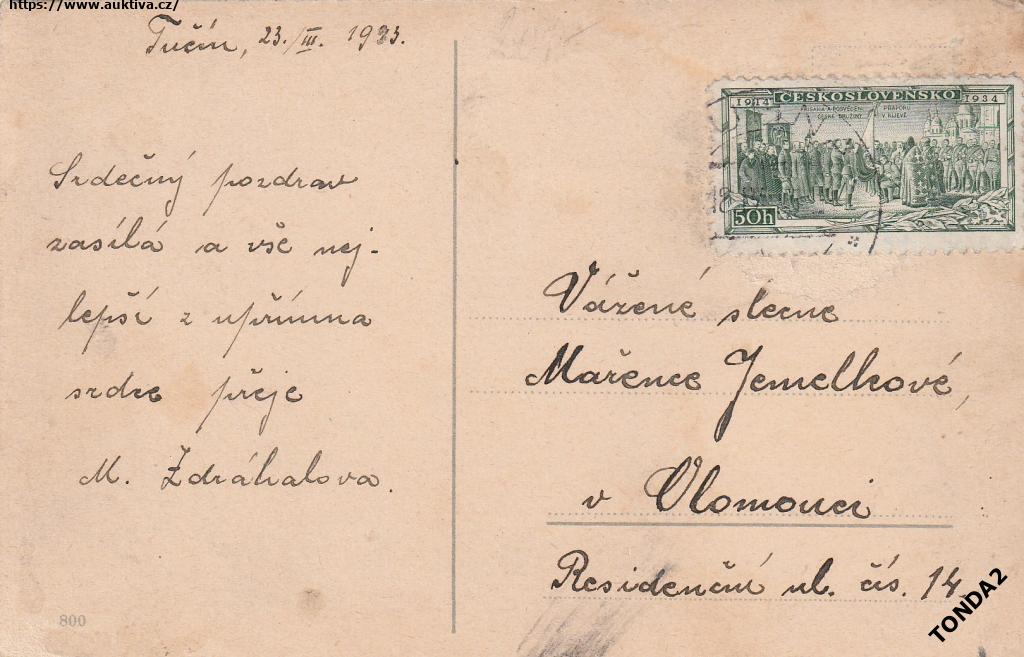 https://www.auktiva.cz/
Tučín, 23./III. 1933.
Srdečný pozdrav
zasílá a vše nej-
lepší z upřímna
srdce přeje
M. Zdráhalova.
800
ČESKOSLOVENSKO
1914 1934
PŘÍSAHA A POSVĚCENÍ PRAPORU
ČESKÉ DRUŽINY V KIJEVĚ
50h
Vážené slecne
Mařence Jemelkové,
v Olomouci
Residenční ul. čís. 14.
TONDA2